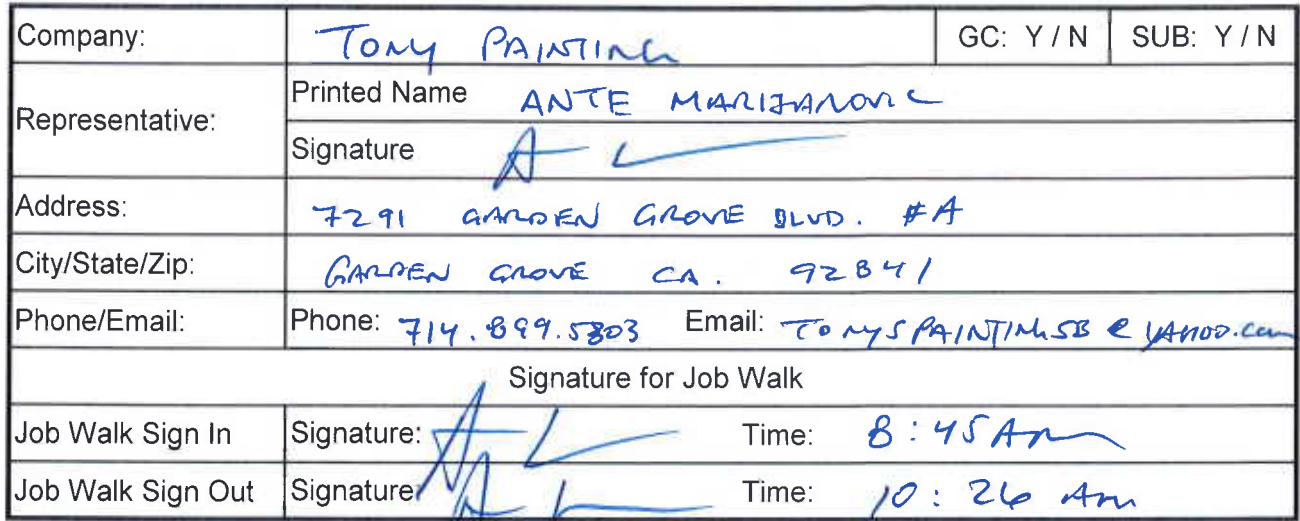 Company: TONY PAINTING GC: Y / N SUB: Y / N
Representative:
Printed Name ANTE MARIJANOVIC
Signature
Address: 7291 GARDEN GROVE BLVD. #A
City/State/Zip: GARDEN GROVE CA. 92841
Phone/Email: Phone: 714.899.5803 Email: TONYSPAINTINGSB@YAHOO.com
Signature for Job Walk
Job Walk Sign In Signature: Time: 8:45 Am
Job Walk Sign Out Signature: Time: 10:26 Am